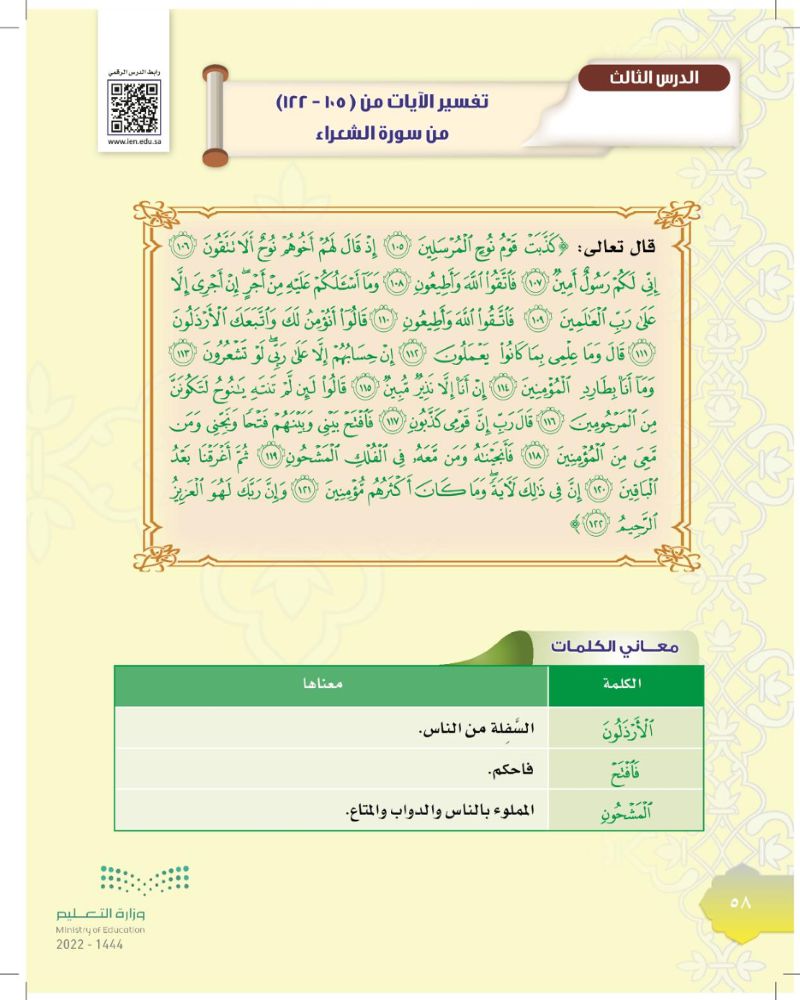 رابط الدرس الرقمي
www.ien.edu.sa
الدرس الثالث
تفسير الآيات من (١٠٥ - ١٢٢)
من سورة الشعراء
قال تعالى: ﴿كَذَّبَتْ قَوْمُ نُوحٍ ٱلْمُرْسَلِينَ ١٠٥ إِذْ قَالَ لَهُمْ أَخُوهُمْ نُوحٌ أَلَا تَتَّقُونَ ١٠٦
إِنِّي لَكُمْ رَسُولٌ أَمِينٌ ١٠٧ فَٱتَّقُوا۟ ٱللَّهَ وَأَطِيعُونِ ١٠٨ وَمَآ أَسْـَٔلُكُمْ عَلَيْهِ مِنْ أَجْرٍ ۖ إِنْ أَجْرِىَ إِلَّا
عَلَىٰ رَبِّ ٱلْعَـٰلَمِينَ ١٠٩ فَٱتَّقُوا۟ ٱللَّهَ وَأَطِيعُونِ ١١٠ قَالُوٓا۟ أَنُؤْمِنُ لَكَ وَٱتَّبَعَكَ ٱلْأَرْذَلُونَ
١١١ قَالَ وَمَا عِلْمِى بِمَا كَانُوا۟ يَعْمَلُونَ ١١٢ إِنْ حِسَابُهُمْ إِلَّا عَلَىٰ رَبِّى ۖ لَوْ تَشْعُرُونَ ١١٣
وَمَآ أَنَا۠ بِطَارِدِ ٱلْمُؤْمِنِينَ ١١٤ إِنْ أَنَا۠ إِلَّا نَذِيرٌ مُّبِينٌ ١١٥ قَالُوا۟ لَئِن لَّمْ تَنتَهِ يَـٰنُوحُ لَتَكُونَنَّ
مِنَ ٱلْمَرْجُومِينَ ١١٦ قَالَ رَبِّ إِنَّ قَوْمِى كَذَّبُونِ ١١٧ فَٱفْتَحْ بَيْنِى وَبَيْنَهُمْ فَتْحًا وَنَجِّنِى وَمَن
مَّعِىَ مِنَ ٱلْمُؤْمِنِينَ ١١٨ فَأَنجَيْنَـٰهُ وَمَن مَّعَهُۥ فِى ٱلْفُلْكِ ٱلْمَشْحُونِ ١١٩ ثُمَّ أَغْرَقْنَا بَعْدُ
ٱلْبَاقِينَ ١٢٠ إِنَّ فِى ذَٰلِكَ لَـَٔايَةً ۖ وَمَا كَانَ أَكْثَرُهُم مُّؤْمِنِينَ ١٢١ وَإِنَّ رَبَّكَ لَهُوَ ٱلْعَزِيزُ
ٱلرَّحِيمُ ١٢٢﴾
معـــاني الكلمات
الكلمة معناها
ٱلْأَرْذَلُونَ السَّفِلة من الناس.
فَٱفْتَحْ فاحكم.
ٱلْمَشْحُونِ المملوء بالناس والدواب والمتاع.
وزارة التعـــليم
Ministry of Education
2022 - 1444
٥٨